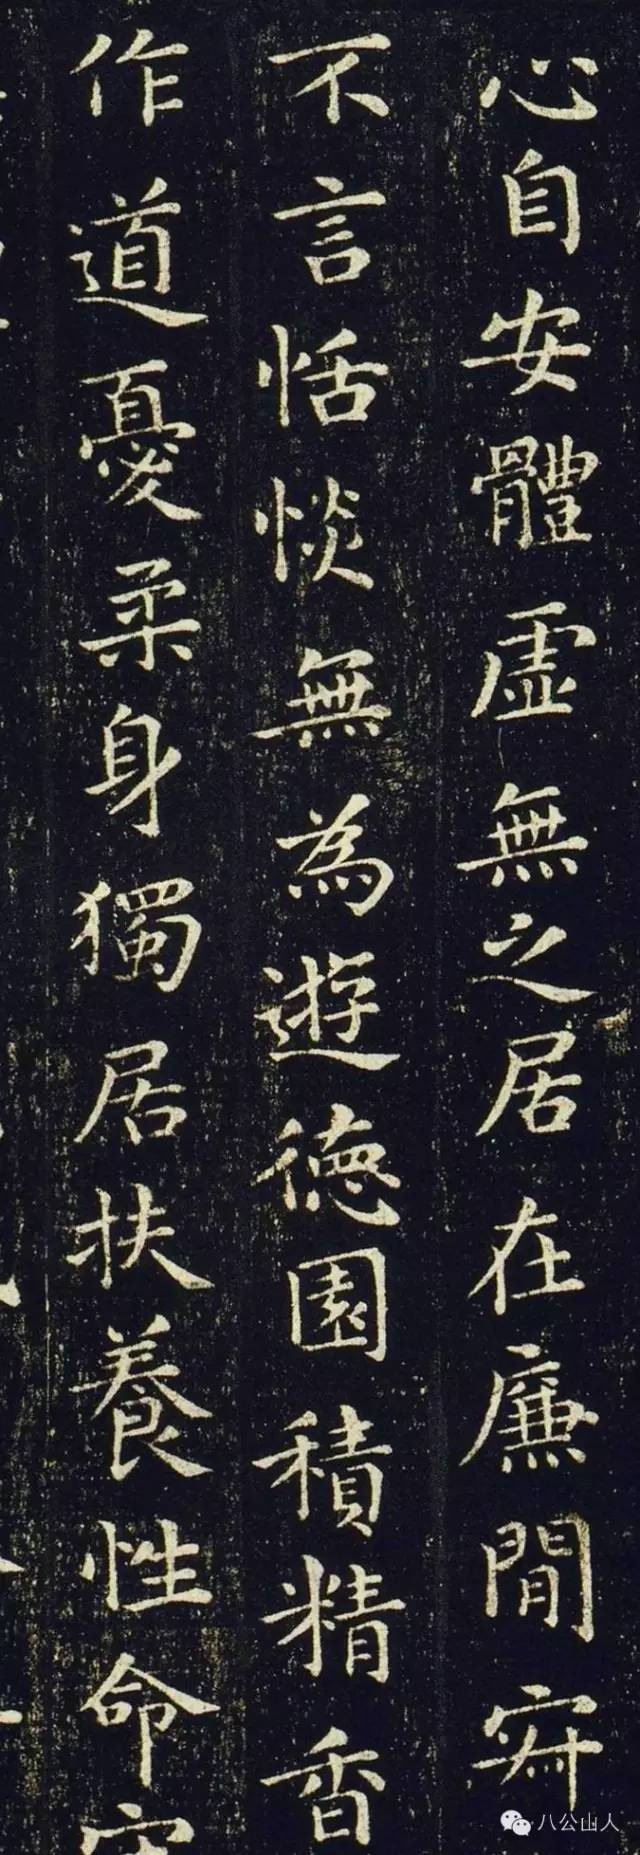 心自安體虛無之居在廉閒寂
不言恬惔無為遊德園積精香
作道憂柔身獨居扶養性命
八公山人